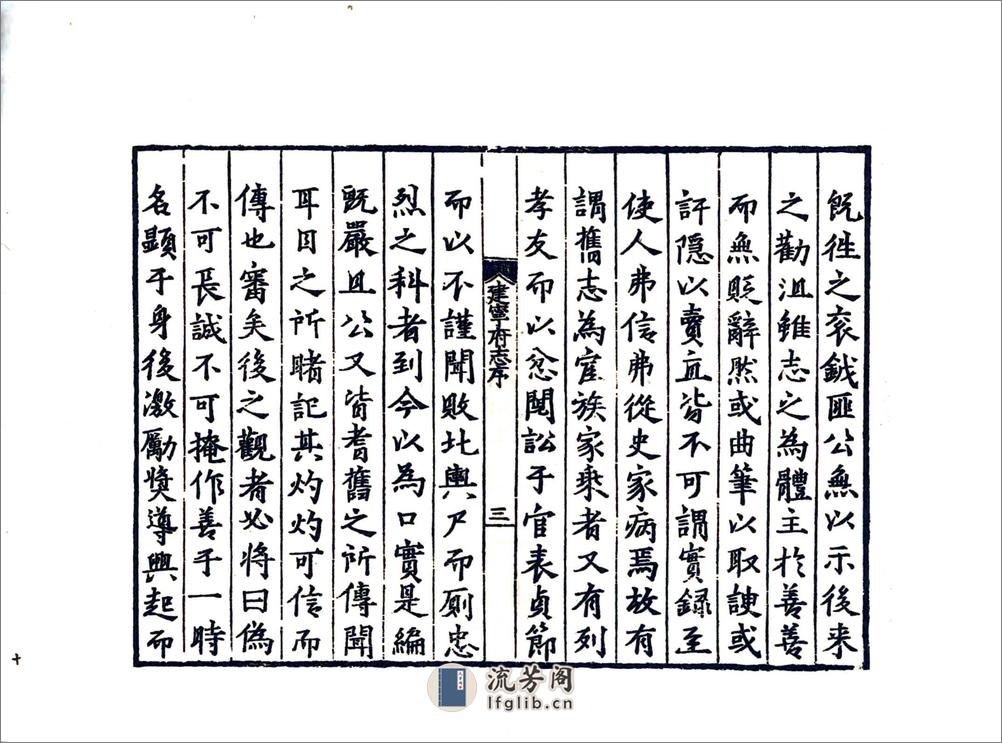 既徃之衮鉞匪公無以示後来
之勸沮雖志之為體主於善善
而無貶辭然或曲筆以取諛或
訐隱以賣直皆不可謂實録至
使人弗信弗從史家病焉故有
謂舊志為宦族家乘者又有列
孝友而以忿鬩訟于官表貞節
建寧府志序
三
而以不謹聞敗北輿尸而厠忠
烈之科者到今以為口實是編
既嚴且公又皆耆舊之所傳聞
耳目之所睹記其灼灼可信而
傳也審矣後之觀者必將曰偽
不可長誠不可掩作善于一時
名顯于身後激勵奬導興起而
十
流芳阁
lfglib.cn